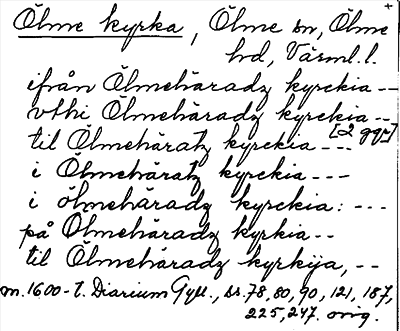 +
Ölme kyrka, Ölme sn, Ölme
hd, Värml. l.
ifrån Ölmehäradz kyrckia --
vthi Ölmehäradz kyrckia --
til Ölmehäratz kyrckia --- [2 ggr]
i Ölmehäratz kyrckia ---
i ölmehäradz kyrckia: ---
på Ölmehäradz kyrkia --
til Ölmehäradz kyrkija, --
m. 1600-t. Diarium Gyll., ss. 78, 80, 90, 121, 187,
225, 247. orig.